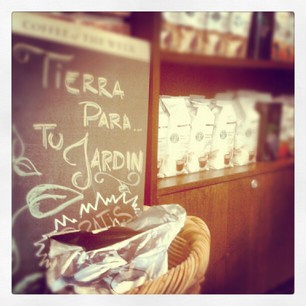 COFFEE of THE WEEK
TIERRA
PARA...
TU
JARDIN
GRATIS